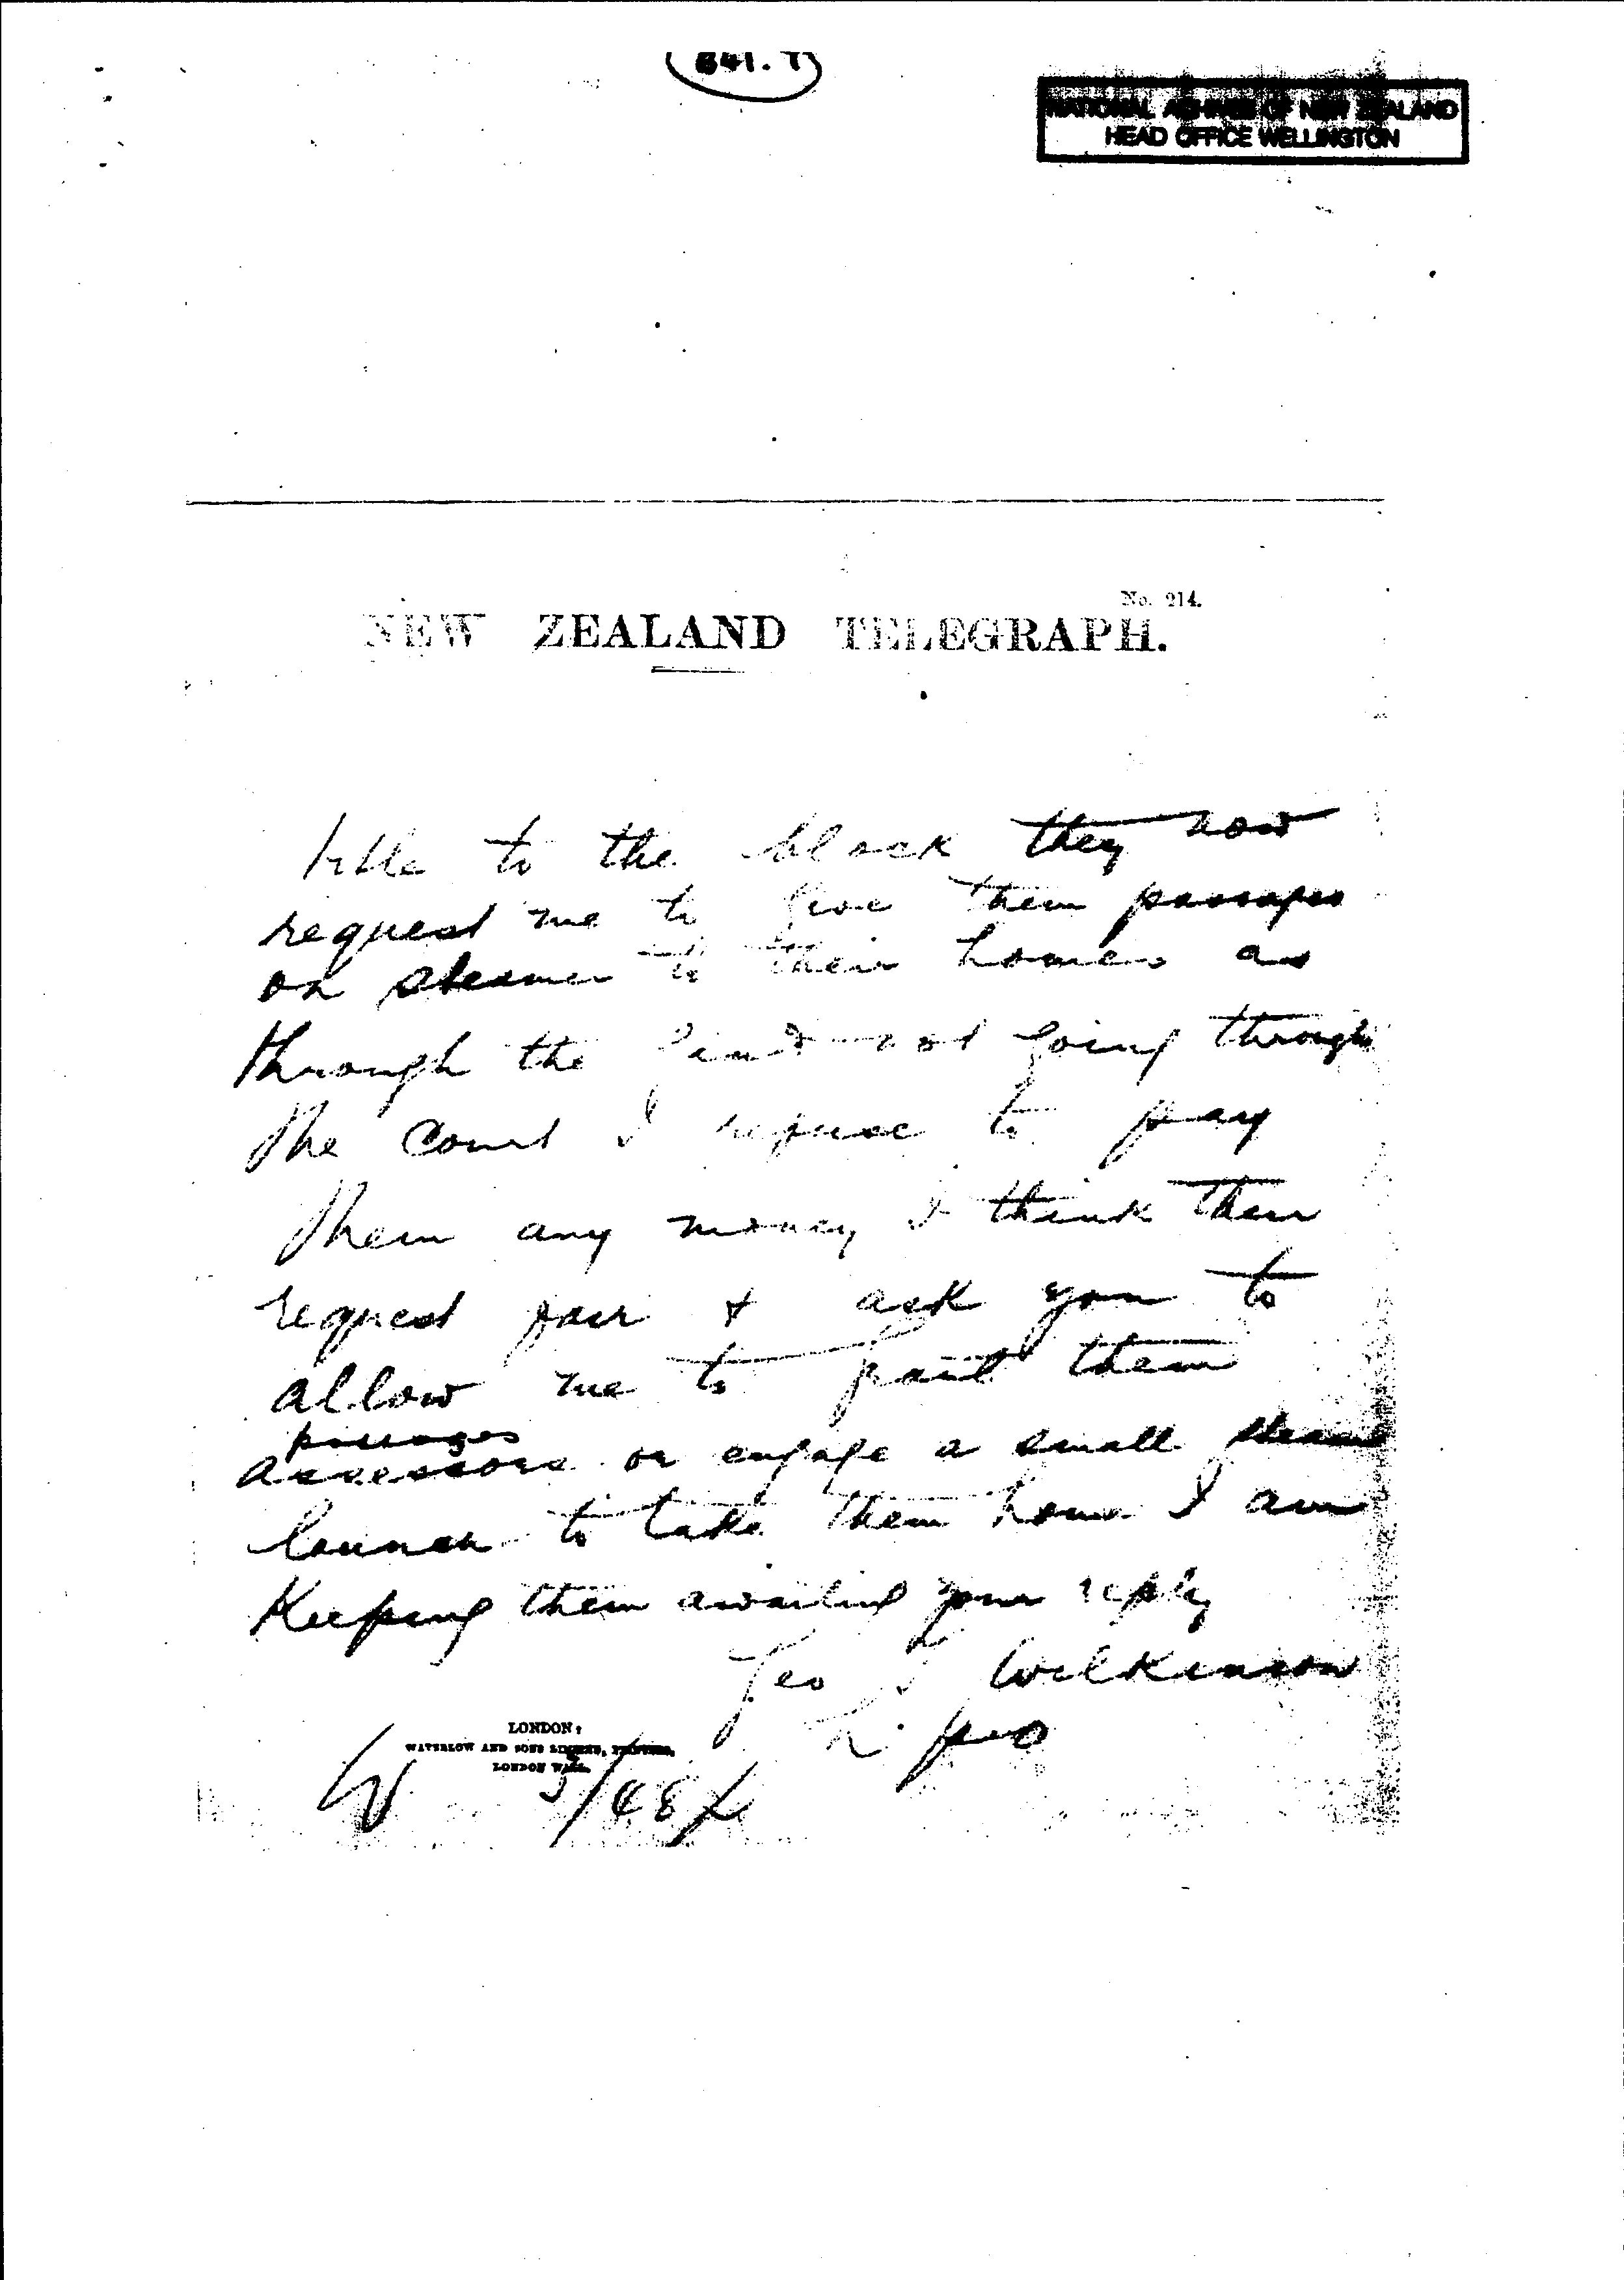 841. T
NATIONAL ARCHIVES OF NEW ZEALAND
HEAD OFFICE WELLINGTON
No. 214.
NEW ZEALAND TELEGRAPH.
title to the block they now
request me to give them passages
on steamer to their homes as
through the land not going through
the Court I refuse to pay
them any money I think their
request fair & ask you to
allow me to grant them
passages
assessors or engage a small steam
launch to take them home I am
Keeping them awaiting your reply
Geo T Wilkinson
LONDON:
WATERLOW AND SONS LIMITED, PRINTERS,
LONDON WALL.